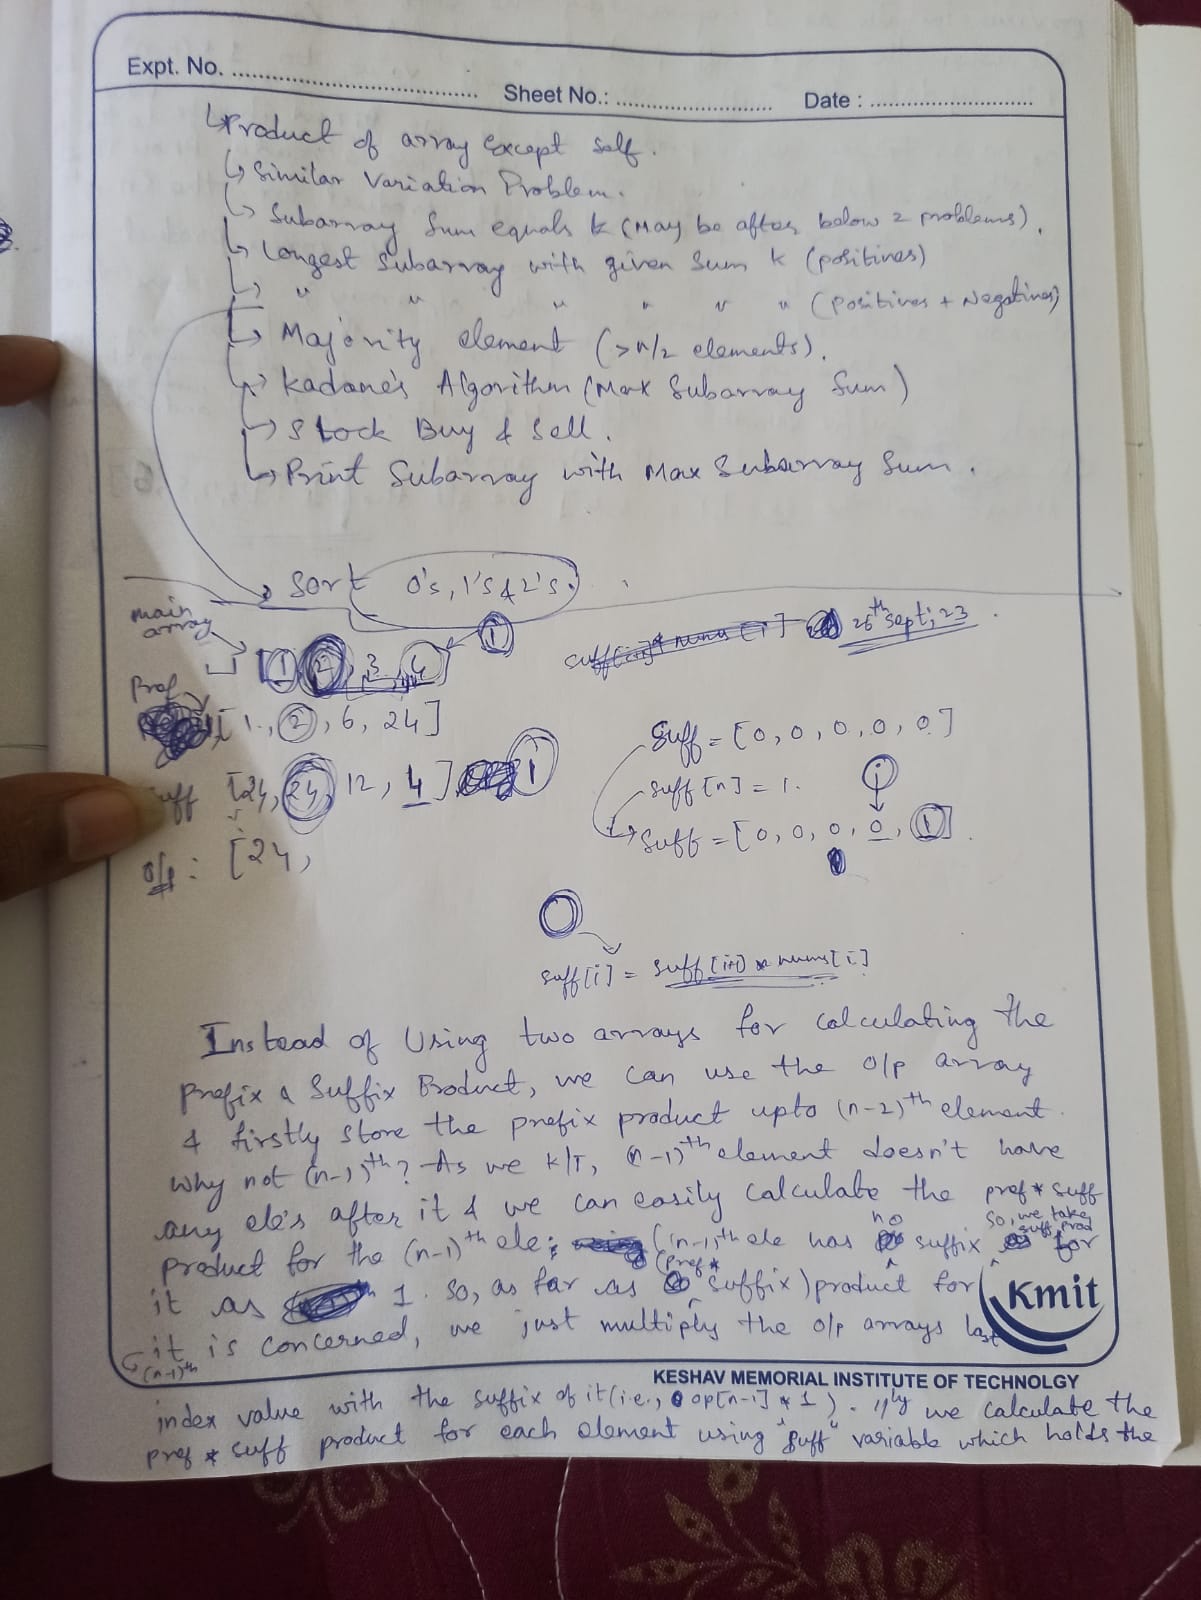 Expt. No. ........................................
Sheet No.: ..........................
Date : ...........................
↳Product of array except self.
↳ Similar Variation Problem.
↳ Subarray Sum equals k (May be after below 2 problems).
↳ Longest Subarray with given Sum k (positives)
↳ " " " " " " (Positives + Negatives)
↳ Majority element (>n/2 elements).
↳ Kadane's Algorithm (Max Subarray Sum)
↳ Stock Buy & Sell.
↳ Print Subarray with Max Subarray Sum.
→ Sort 0's, 1's & 2's.
main array
[1, 2, 3, 4] 1
suff[i+1]*nums[i] 26th Sept; 23
Pref [1, 2, 6, 24]
suff [24, 24, 12, 4] 1
o/p : [24,
Suff = [0, 0, 0, 0, 0]
suff [n] = 1.
i
suff = [0, 0, 0, 0, 1]
suff [i] = suff [i+1] * nums [i]
Instead of Using two arrays for calculating the
Prefix & Suffix Product, we can use the o/p array
& firstly store the prefix product upto (n-2)th element.
why not (n-1)th? As we K/T, (n-1)th element doesn't have
any ele's after it & we can easily calculate the pref * suff
product for the (n-1)th ele; (n-1)th ele has no suffix so, we take suff prod for
it as 1. So, as far as (pref * suffix) product for
it is concerned, we just multiply the o/p arrays last
(n-1)th
Kmit
KESHAV MEMORIAL INSTITUTE OF TECHNOLGY
index value with the suffix of it (i.e., op[n-1] * 1). lly we calculate the
pref * suff product for each element using "suff" variable which holds the